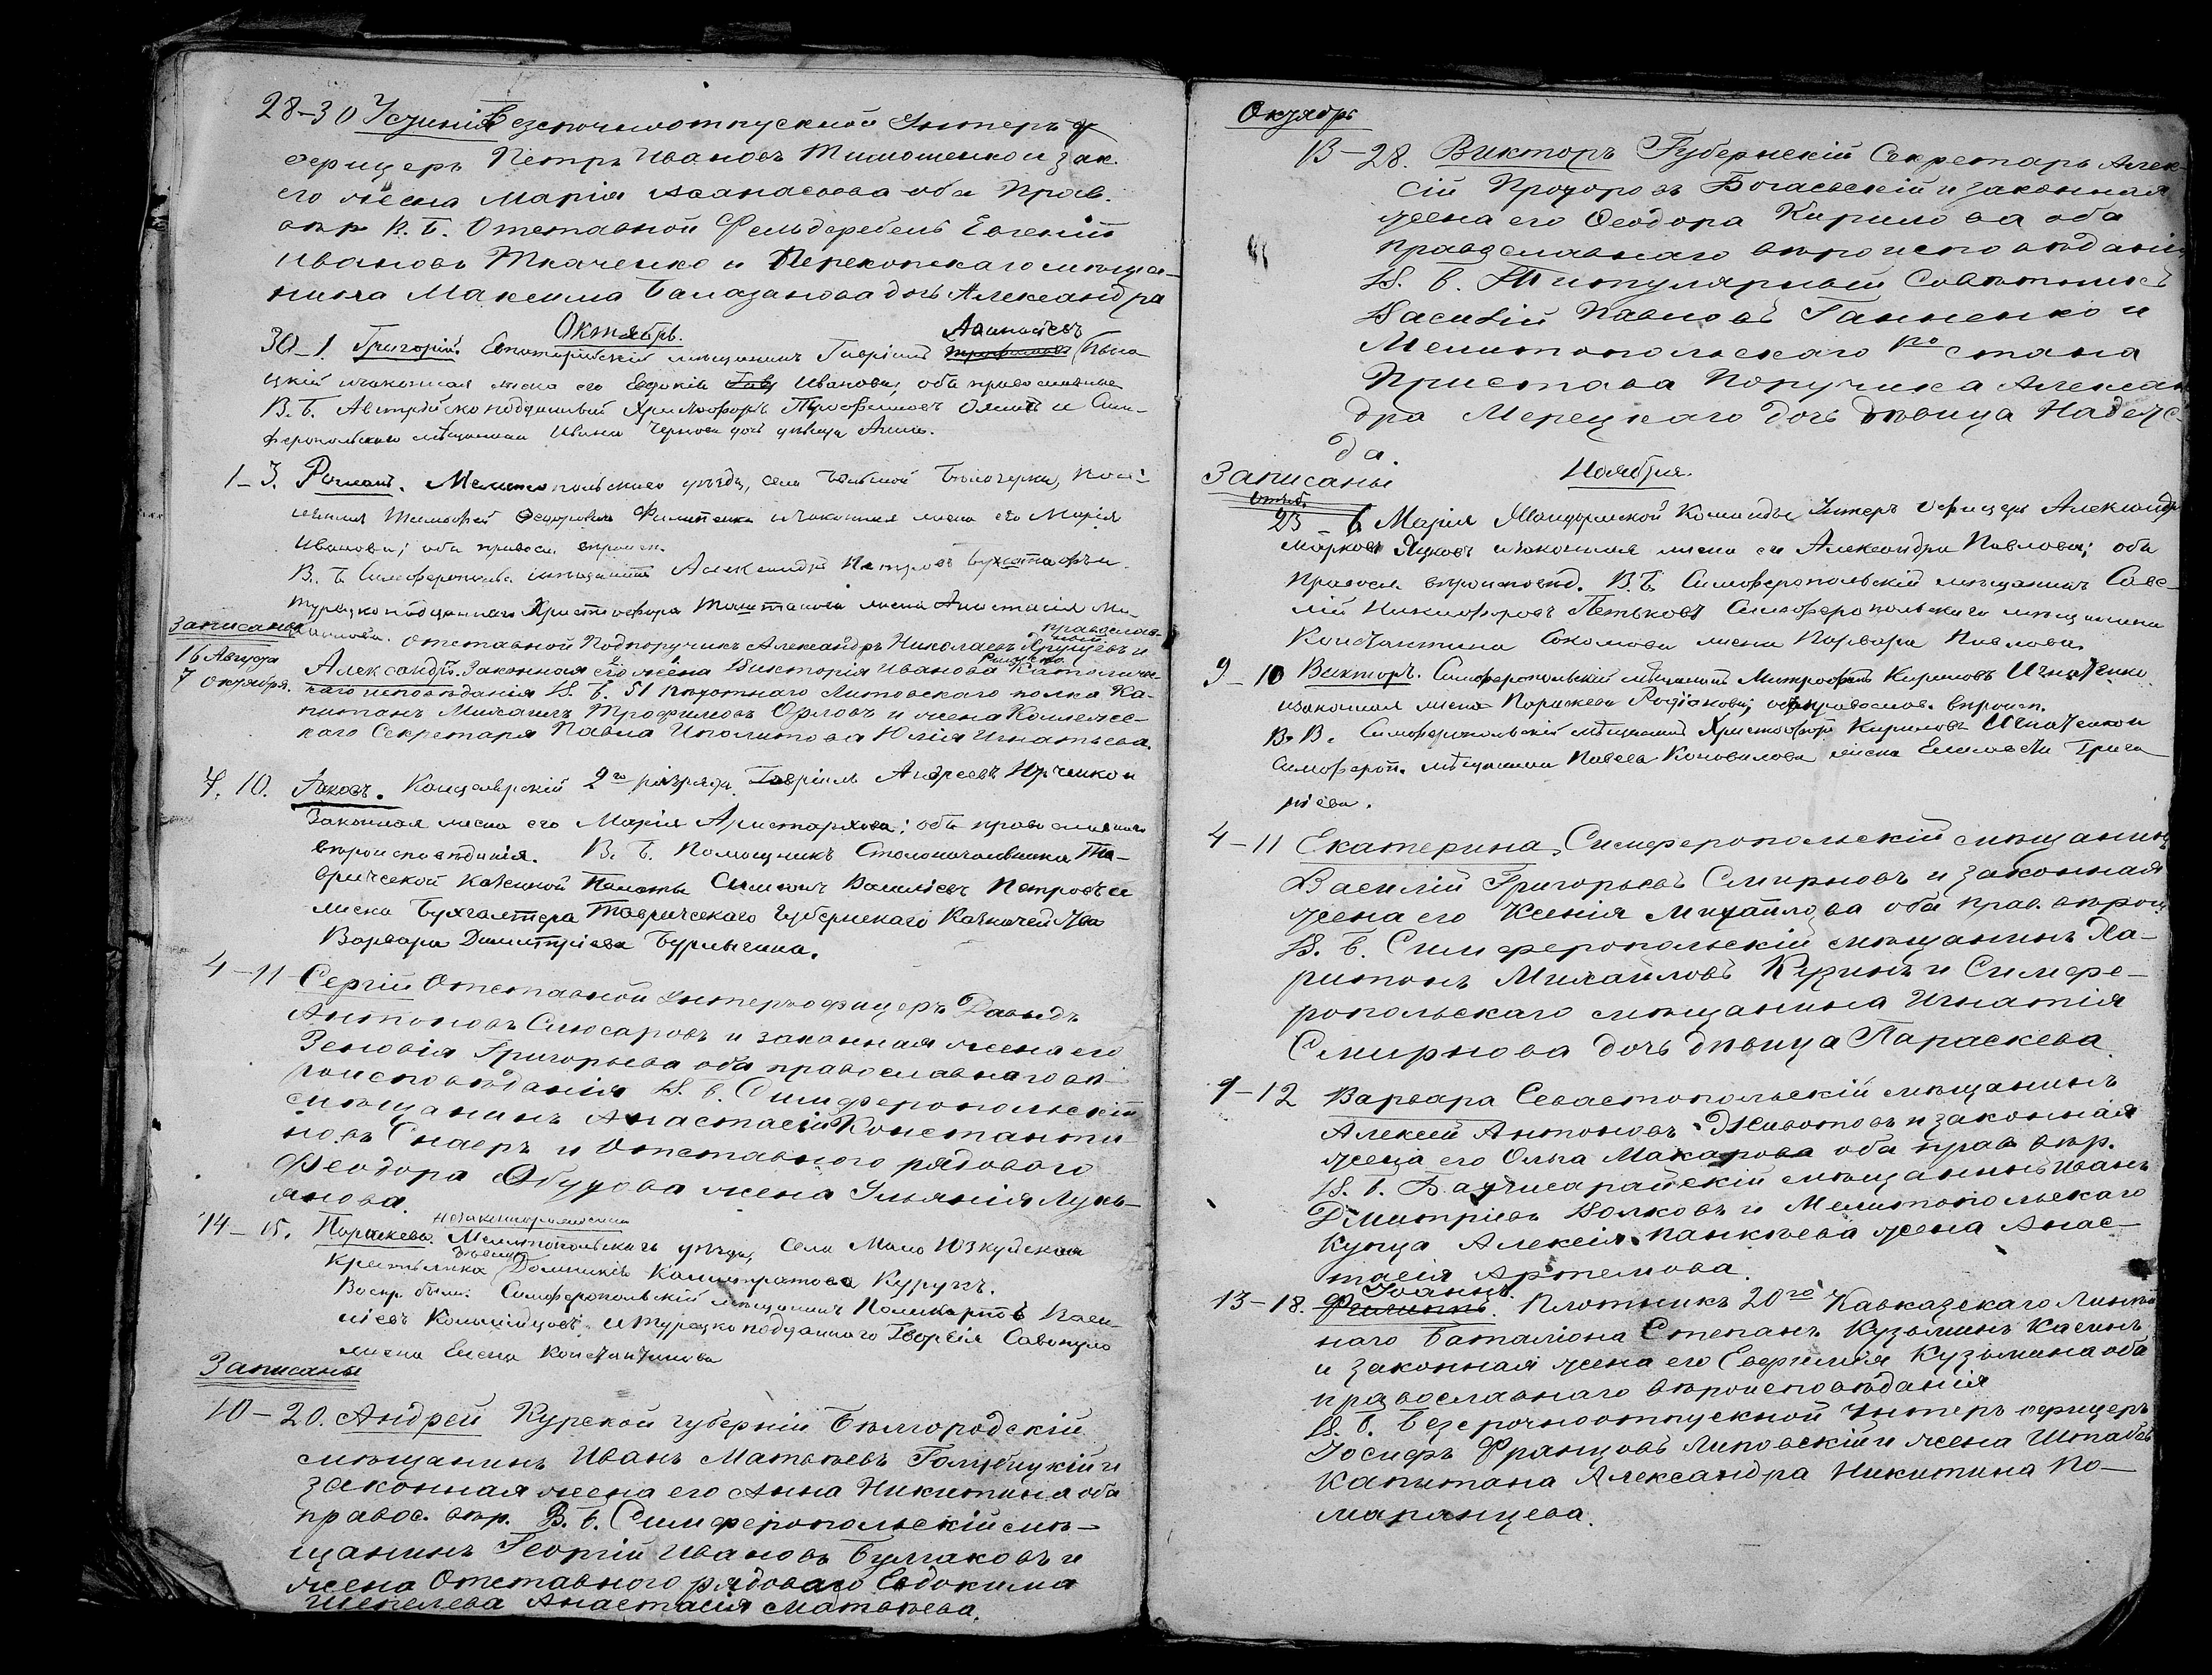 28-30 Іустинія Безсрочноотпускной Унтеръ о
фицеръ Петръ Ивановъ Тимошенко и зак.
его жена Марія Аѳанасьева оба Прав.
вѣр. В. б. Отставной Фельдфебель Евгеній
Ивановъ Ткаченко и Перекопскаго мѣща-
нина Максима Балазанова дочь Александра
Октябрь.
30-1. Григорій. Евпаторійскій мѣщанинъ Гавріилъ Аѳанасіевъ
цкій и законная жена его Евдокія Иванова, оба православные
В. Б. Австрійскоподданный Христофоръ Трофимовъ и Сим-
феропольскаго мѣщанина Ивана Чернова дочь дѣвица Анна.
1-3. Романъ. Мелитопольскаго уѣзда, села Большой Бѣлозерки, посе-
лянинъ Тимофей Ѳеодоровъ Филипенко и законная жена его Марія
Иванова; оба правосл. вѣроисп.
В. Б. Симферопольс. мѣщанинъ Александръ Петровъ и
турецкоподданнаго Христофора жена Анастасія Ми-
хаилова.
Записаны
16 Августа
7 Октября.
Отставной Подпоручикъ Александръ Николаевъ православ-
ный и
Александръ. Законная его жена Викторія Иванова Римско Католиче-
скаго исповѣданія В. Б. 51 пѣхотнаго Литовскаго полка Ка-
питанъ Михаилъ Трофимовъ Орловъ и жена Коллежс-
каго Секретаря Павла Иполитова Юлія Игнатьева.
7. 10. Іаковъ. Канцелярскій 2го разряда Гавріилъ Андреевъ Юрченко и
законная жена его Марія Аристархова; оба православнаго
вѣроисповѣданія. В. Б. Помощникъ Столоначальника Та-
врической Казенной Палаты Симеонъ Василіевъ Петровъ и
жена Бухгалтера Таврическаго Губернскаго Казначейства
Варвара Димитріева Бурлычина.
4-11 Сергій Отставной унтеръ офицеръ Давидъ
Антоновъ Слюсаровъ и законная жена его
Зеновія Григорьева оба православнаго вѣ-
роисповѣданія В. б. Симферопольскій
мѣщанинъ Анастасій Константи
новъ Снаеръ и Отставного рядового
Феодора Обухова жена Ульянія Лукь-
янова.
14-15. Параскева. незаконнорожденная Мелитопольскаго уѣзда, Села Мало Юзкуйской
Крестьянка дѣвица Домникія Калистратова Курукъ.
Воспр. были: Симферопольскій мѣщанинъ Поликарпъ Васи-
ліевъ Коломійцовъ и турецкоподданнаго Георгія Савопуло
жена Елена Константинова
Записаны
10-20. Андрей Курской губерніи Бѣлгородскій
мѣщанинъ Иванъ Матвѣевъ Голубицкій и
законная жена его Анна Никитина оба
правос. вѣр. В. б. Симферопольскій мѣ-
щанинъ Георгій Ивановъ Булгаковъ и
жена Отставного рядоваго Евдокима
Шепелева Анастасія Матвѣева.
Октябрь
13-28. Викторъ Губернскій Секретарь Алек-
сій Прохоровъ Богаевскій и законная
жена его Ѳеодора Кирилова оба
православнаго вѣроисповѣданія
В. б. Титулярный Совѣтникъ
Василій Павловъ Ганненко и
Мелитопольскаго 1го стана
Пристава Поручика Алексан
дра Мерецкаго дочь дѣвица Надеж-
да.
Записаны Ноября.
октяб.
23-6 Марія Жандармской Команды Унтеръ офицеръ Александръ
Марковъ Яцковъ и законная жена его Александра Павлова; оба
правосл. вѣроисповѣд. В. Б. Симферопольскій мѣщанинъ Саве-
лій Никифоровъ Петьковъ Симферопольскаго мѣщанина
Константина Соколова жена Варвара Павлова.
9-10 Викторъ. Симферопольскій мѣщанинъ Митрофанъ Кириловъ Игнатенко
и законная жена Параскева Родіонова; оба православ. вѣроисп.
В. В. Симферопольскій мѣщанинъ Христофоръ Кириловъ Игнатенко и
Симфероп. мѣщанина Павла Коновалова жена Елисавета Григо
ріева.
4-11 Екатерина, Симферопольскій мѣщанинъ
Василій Григорьевъ Смирновъ и законная
жена его Ксенія Михайлова оба прав. вѣрои
В. Б. Симферопольскій мѣщанинъ Ха-
ритонъ Михайловъ Кузинъ и Симфе-
ропольскаго мѣщанина Игнатія
Смирнова дочь дѣвица Параскева.
9-12 Варвара Севастопольскій мѣщанинъ
Алексѣй Антоновъ Животовъ и законная
жена его Ольга Макарова оба прав вѣр.
В. б. Бахчисарайскій мѣщанинъ Иванъ
Дмитріевъ Волковъ и Мелитопольскаго
Купца Алексія Панкѣева жена Анас-
тасія Артемова.
Іоаннъ
13-18. Филиппъ. Плотникъ 20го Кавказскаго Линей
наго Баталіона Степанъ Кузьминъ Касинъ
и законная жена его Евфимія Кузьмина оба
православнаго вѣроисповѣданія
В. б. Безсрочноотпускной Унтеръ офицеръ
Іосифъ Францовъ Липовскій и жена Штабсъ
Капитана Александра Никитина По-
маранцева.